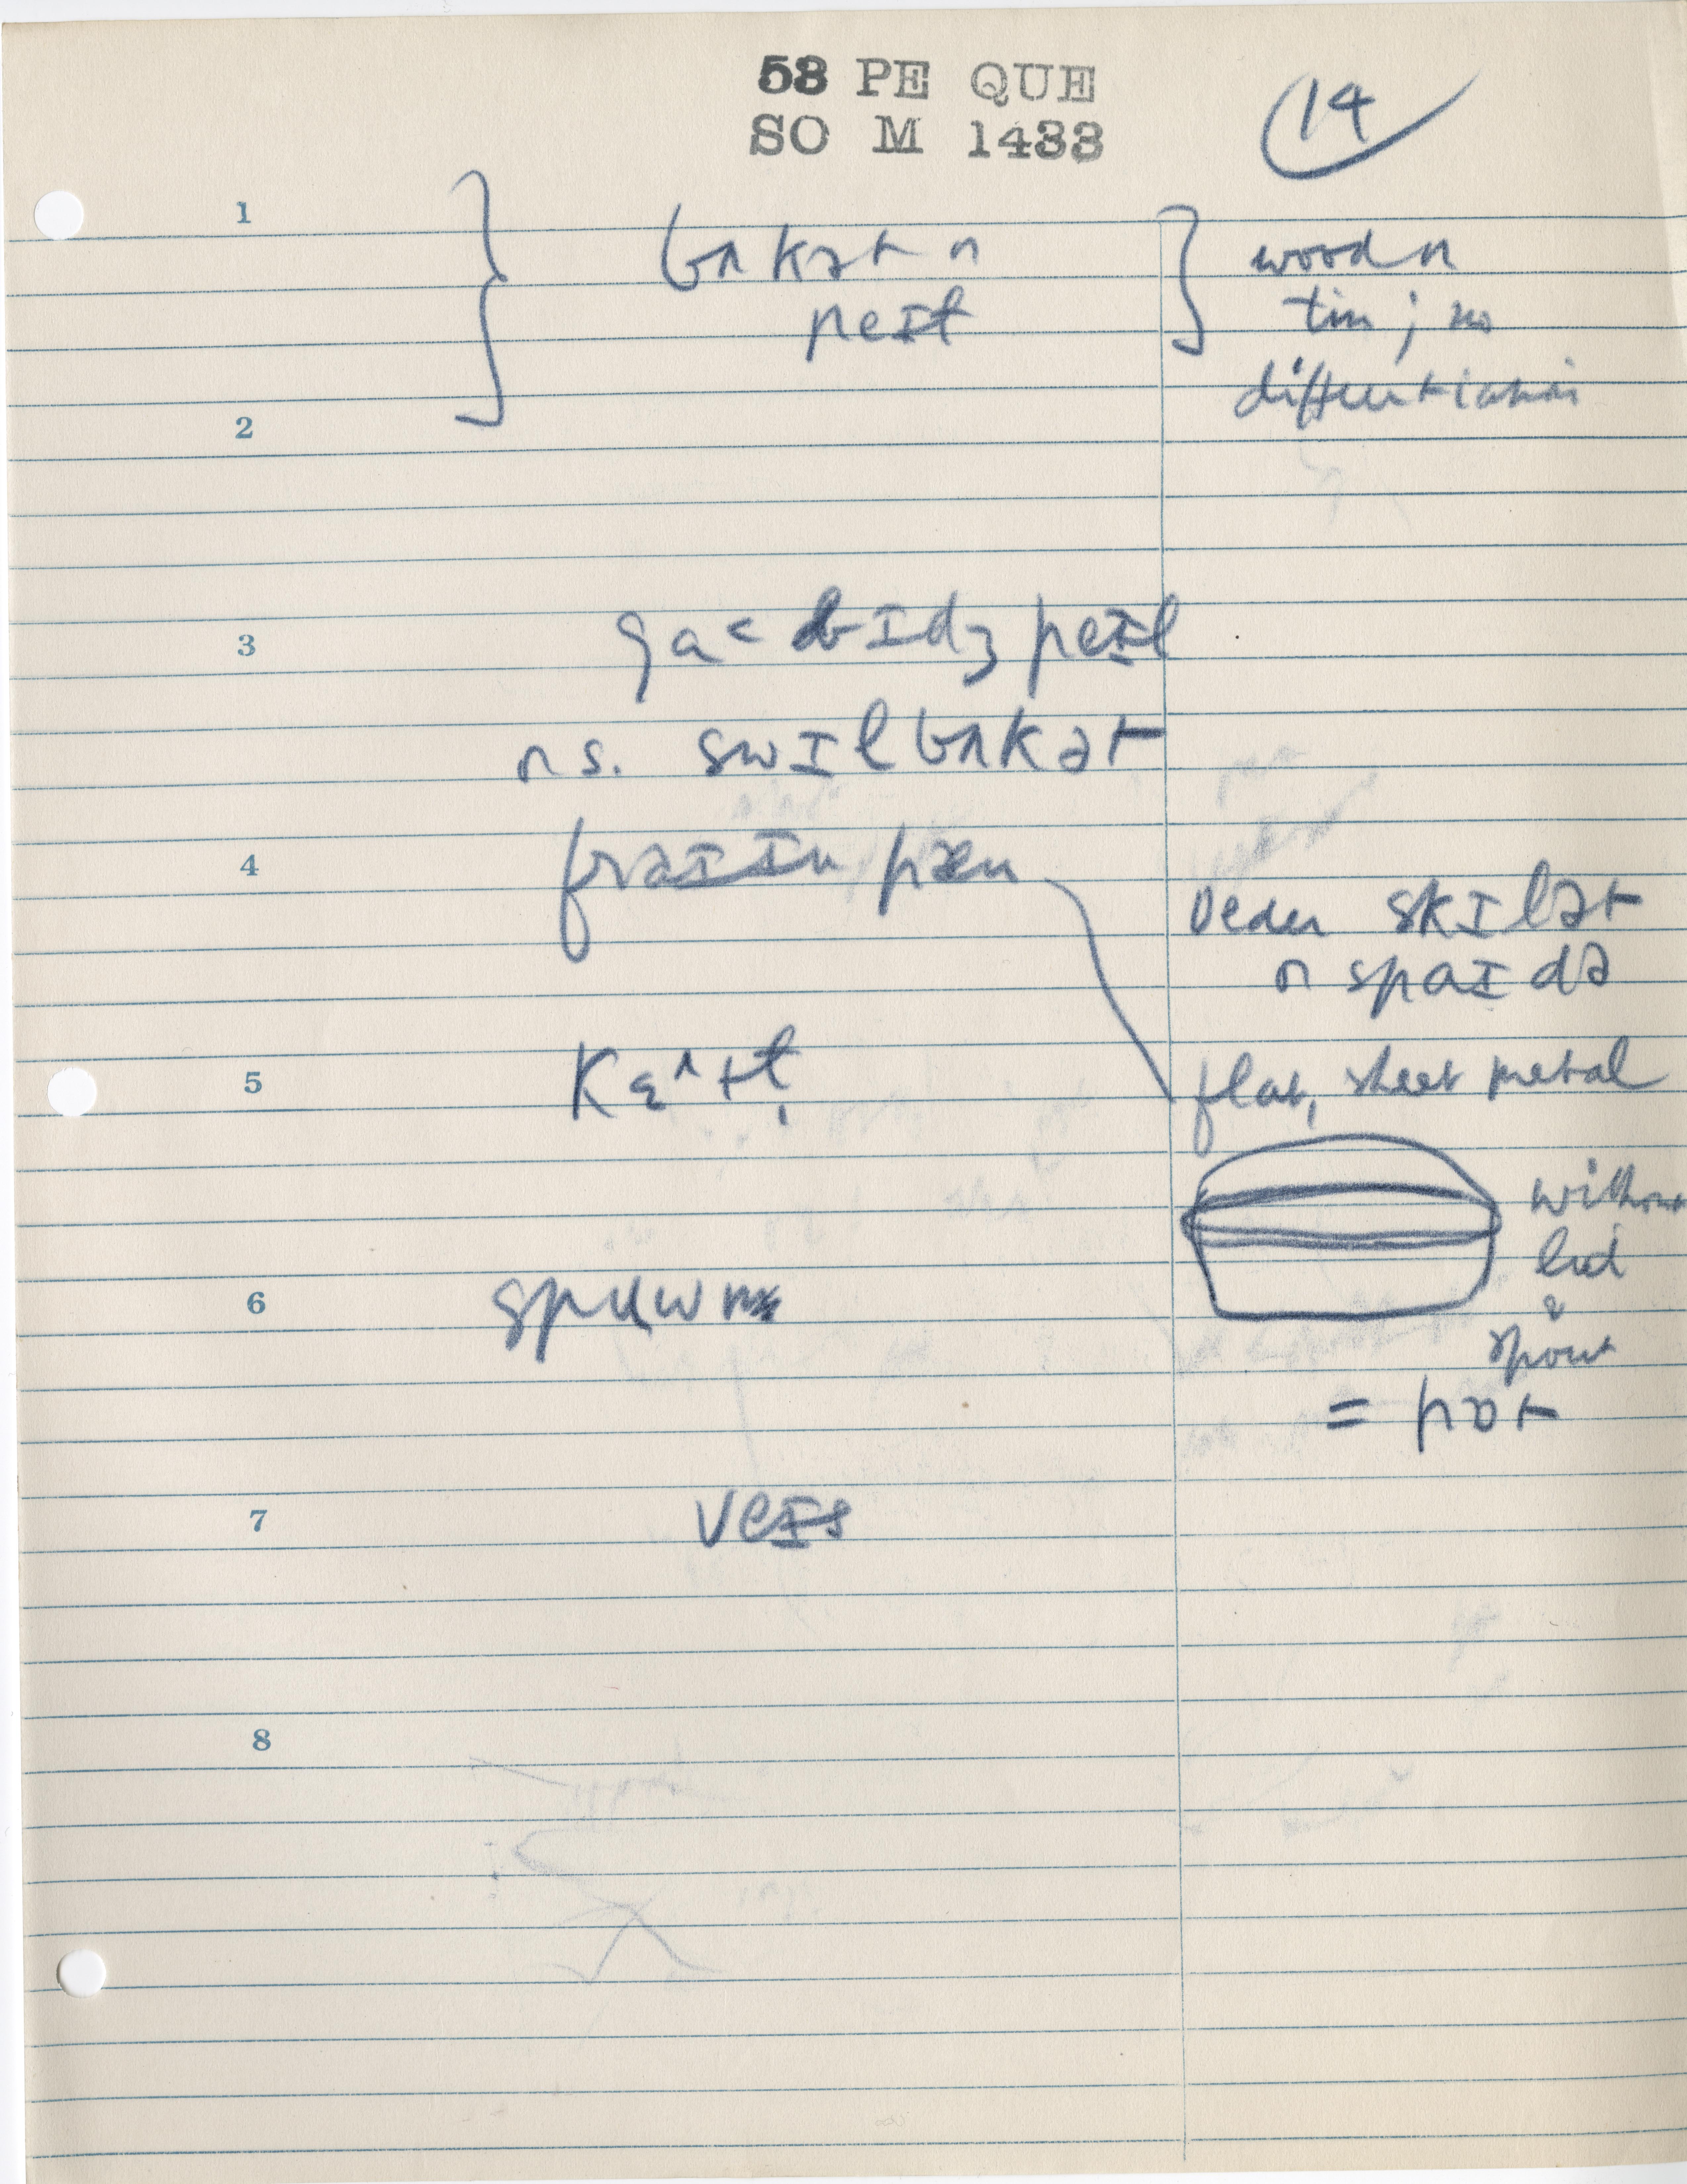 53 PE QUE
SO M 1433
14
1
bʌkət n
peɪl
wood n
tin ; no
differentiation
2
3
gaˑbɪdʒ peɪl
n s. swɪl bʌkət
4
fraɪɪn pæn
older skɪlət
n spaɪdə
5
kɛ^tl̩
flat, sheet metal
without
lid
&
spout
= pɒt
6
7
veɪs
8